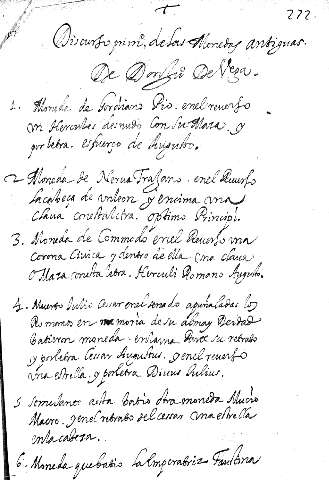 272.
Discurso prim.º de las Monedas antiguas.
De Don De Vega.
1. Moneda de Gordiano Pio. en el reverso
un Hercules desnudo con su Maza y
por letra. esfuerço de Augusto.
2 Moneda de Nerva Trajano. en el Reverso
la cabeça de un leon y encima una
Clava con esta letra. optimo Principi.
3. Moneda de Commodo en el Reverso una
Corona Civica y dentro de ella una Clava
o Maza con esta letra. Herculi Romano Augusto.
4. Muerto Julio Cesar en el senado a puñaladas los
Romanos en memoria de su
batieron moneda en la una Parte su retrato
y por letra Cesar Augustus. y en el reverso
una estrella. y por letra Divus Julius.
5 semejante a esta batio otra moneda
Macro. y en el retrato del cessar una estrella
en la cabeza.
6. Moneda que batio la Imperatriz Faustina